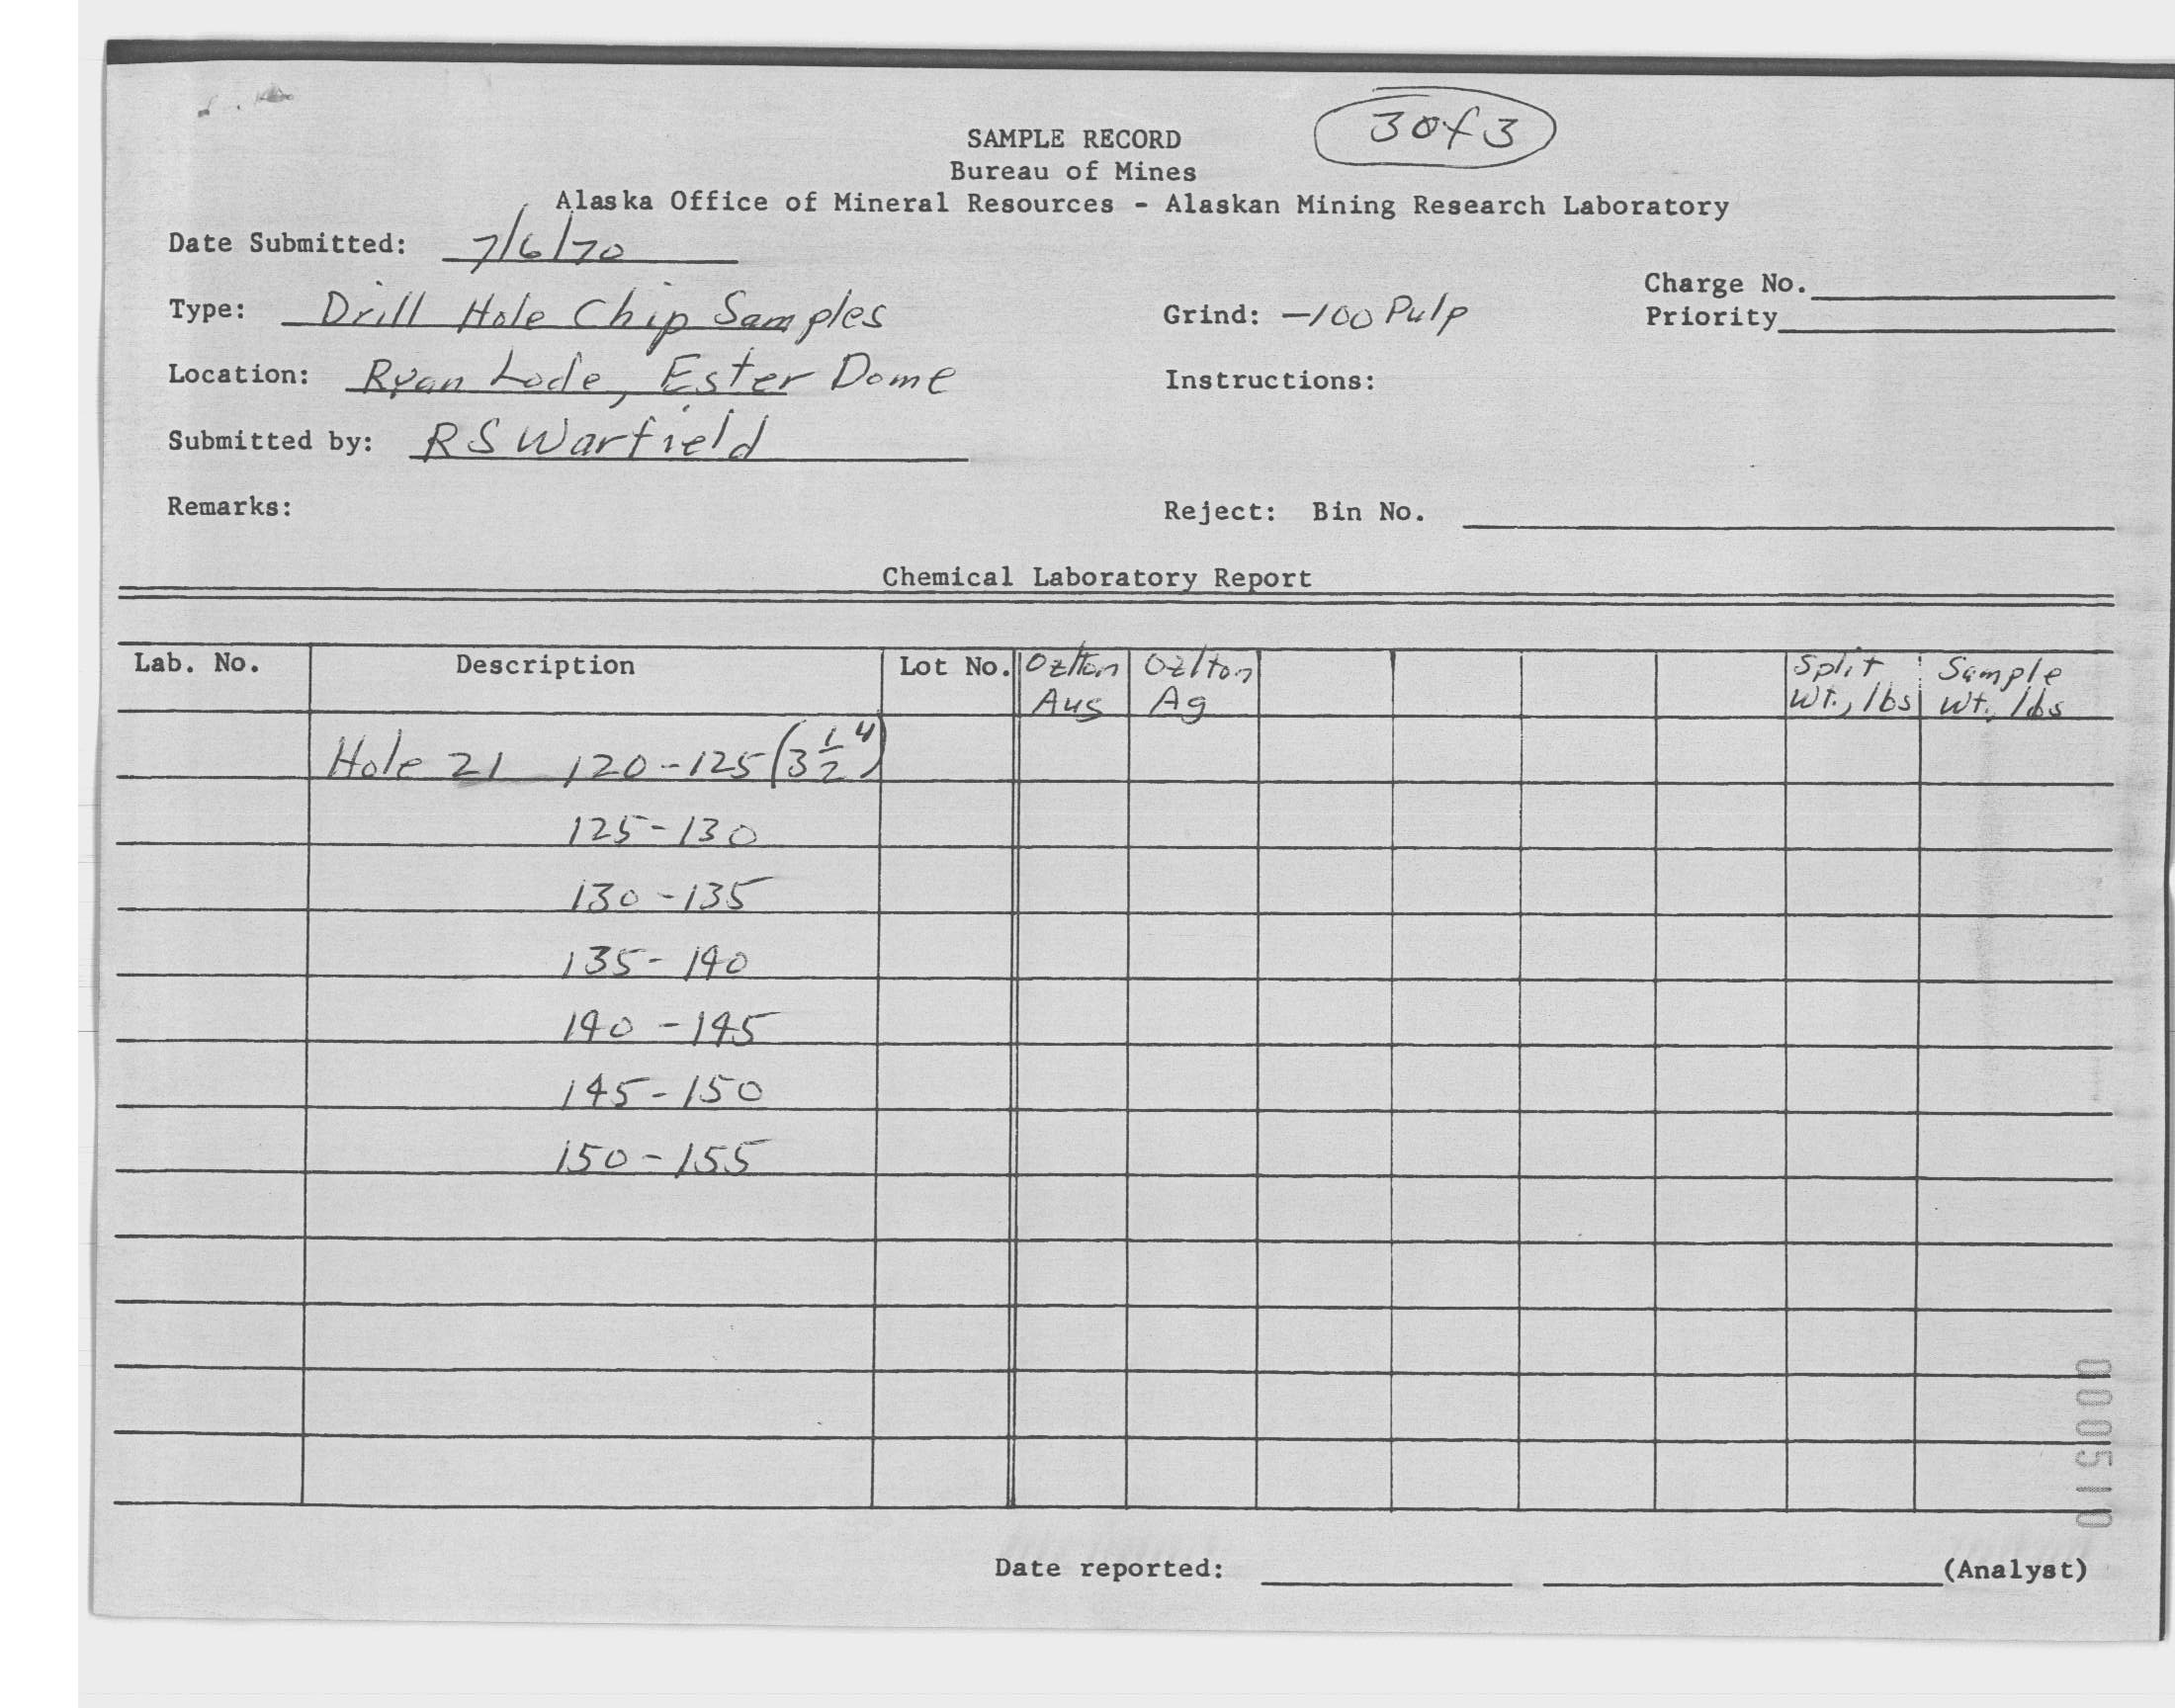 3 of 3
SAMPLE RECORD
Bureau of Mines
Alaska Office of Mineral Resources - Alaskan Mining Research Laboratory
Date Submitted: 7/6/70
Charge No.
Type: Drill Hole Chip Samples Grind: -100 Pulp
Priority
Location: Ryan Lode, Ester Dome Instructions:
Submitted by: RS Warfield
Remarks: Reject: Bin No.
Chemical Laboratory Report
Lab. No. Description Lot No. Oz/ton Oz/ton Split Sample
Ag Wt., lbs Wt., lbs
Hole 21 120-125 (3 1/2")
125-130
130-135
135-140
140-145
145-150
150-155
000510
Date reported: (Analyst)